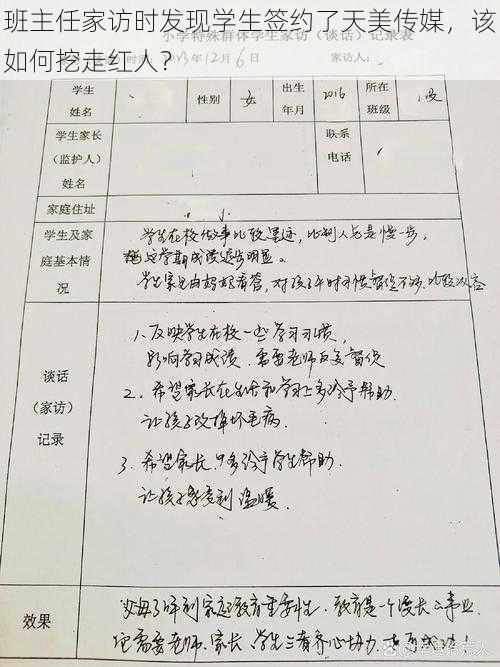 班主任家访时发现学生签约了天美传媒，该如何挖走红人？
小学特殊群体学生家访（谈话）记录表
2023年12月6日
家访人：
学生姓名
性别
女
出生年月
2016
所在班级
学生家长（监护人）姓名
联系电话
家庭住址
学生及家庭基本情况
学生在校做事比较里迹，比别人总是慢一步，
学期成绩退步明显。
谈话（家访）记录
1、反映学生在校一些学习习惯，
影响学习成绩，需要老师反复督促
2、希望家长在生活和学习上多给予帮助.
让孩子改掉坏毛病.
3、希望家长多给予学生帮助.
让孩子感受到温暖.
效果
父母了解到家庭教育重要性，教育是一个漫长的事业
它需要老师、家长、学生三者齐心协力，